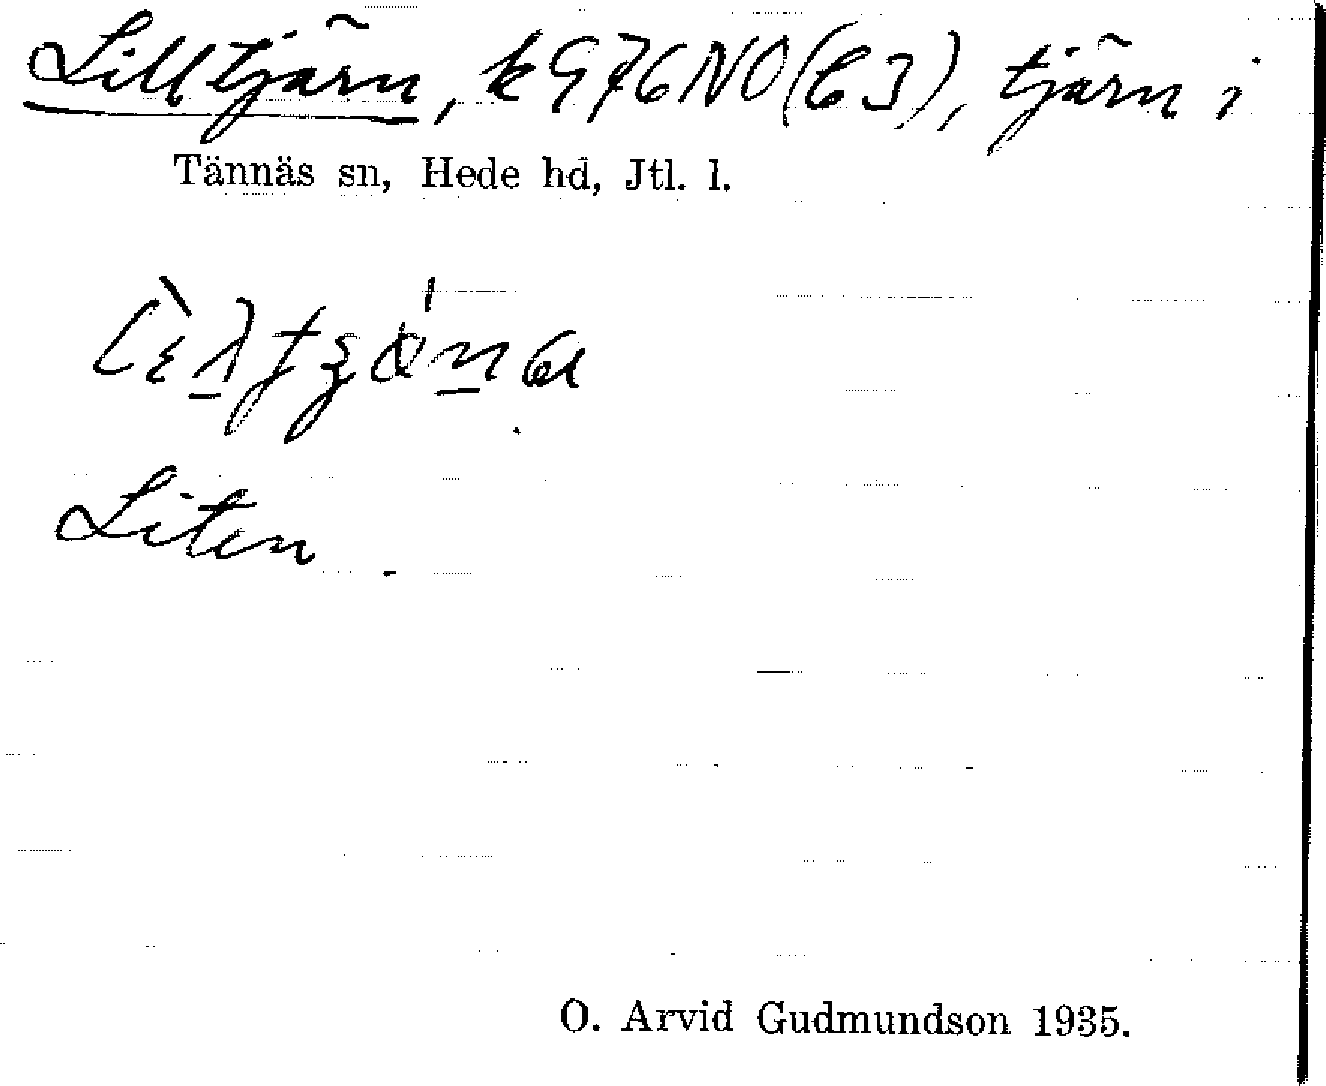 Lilltjärn, k G 76 NO (C3), tjärn i
Tännäs sn, Hede hd, Jtl. l.
Liten
O. Arvid Gudmundson 1935.